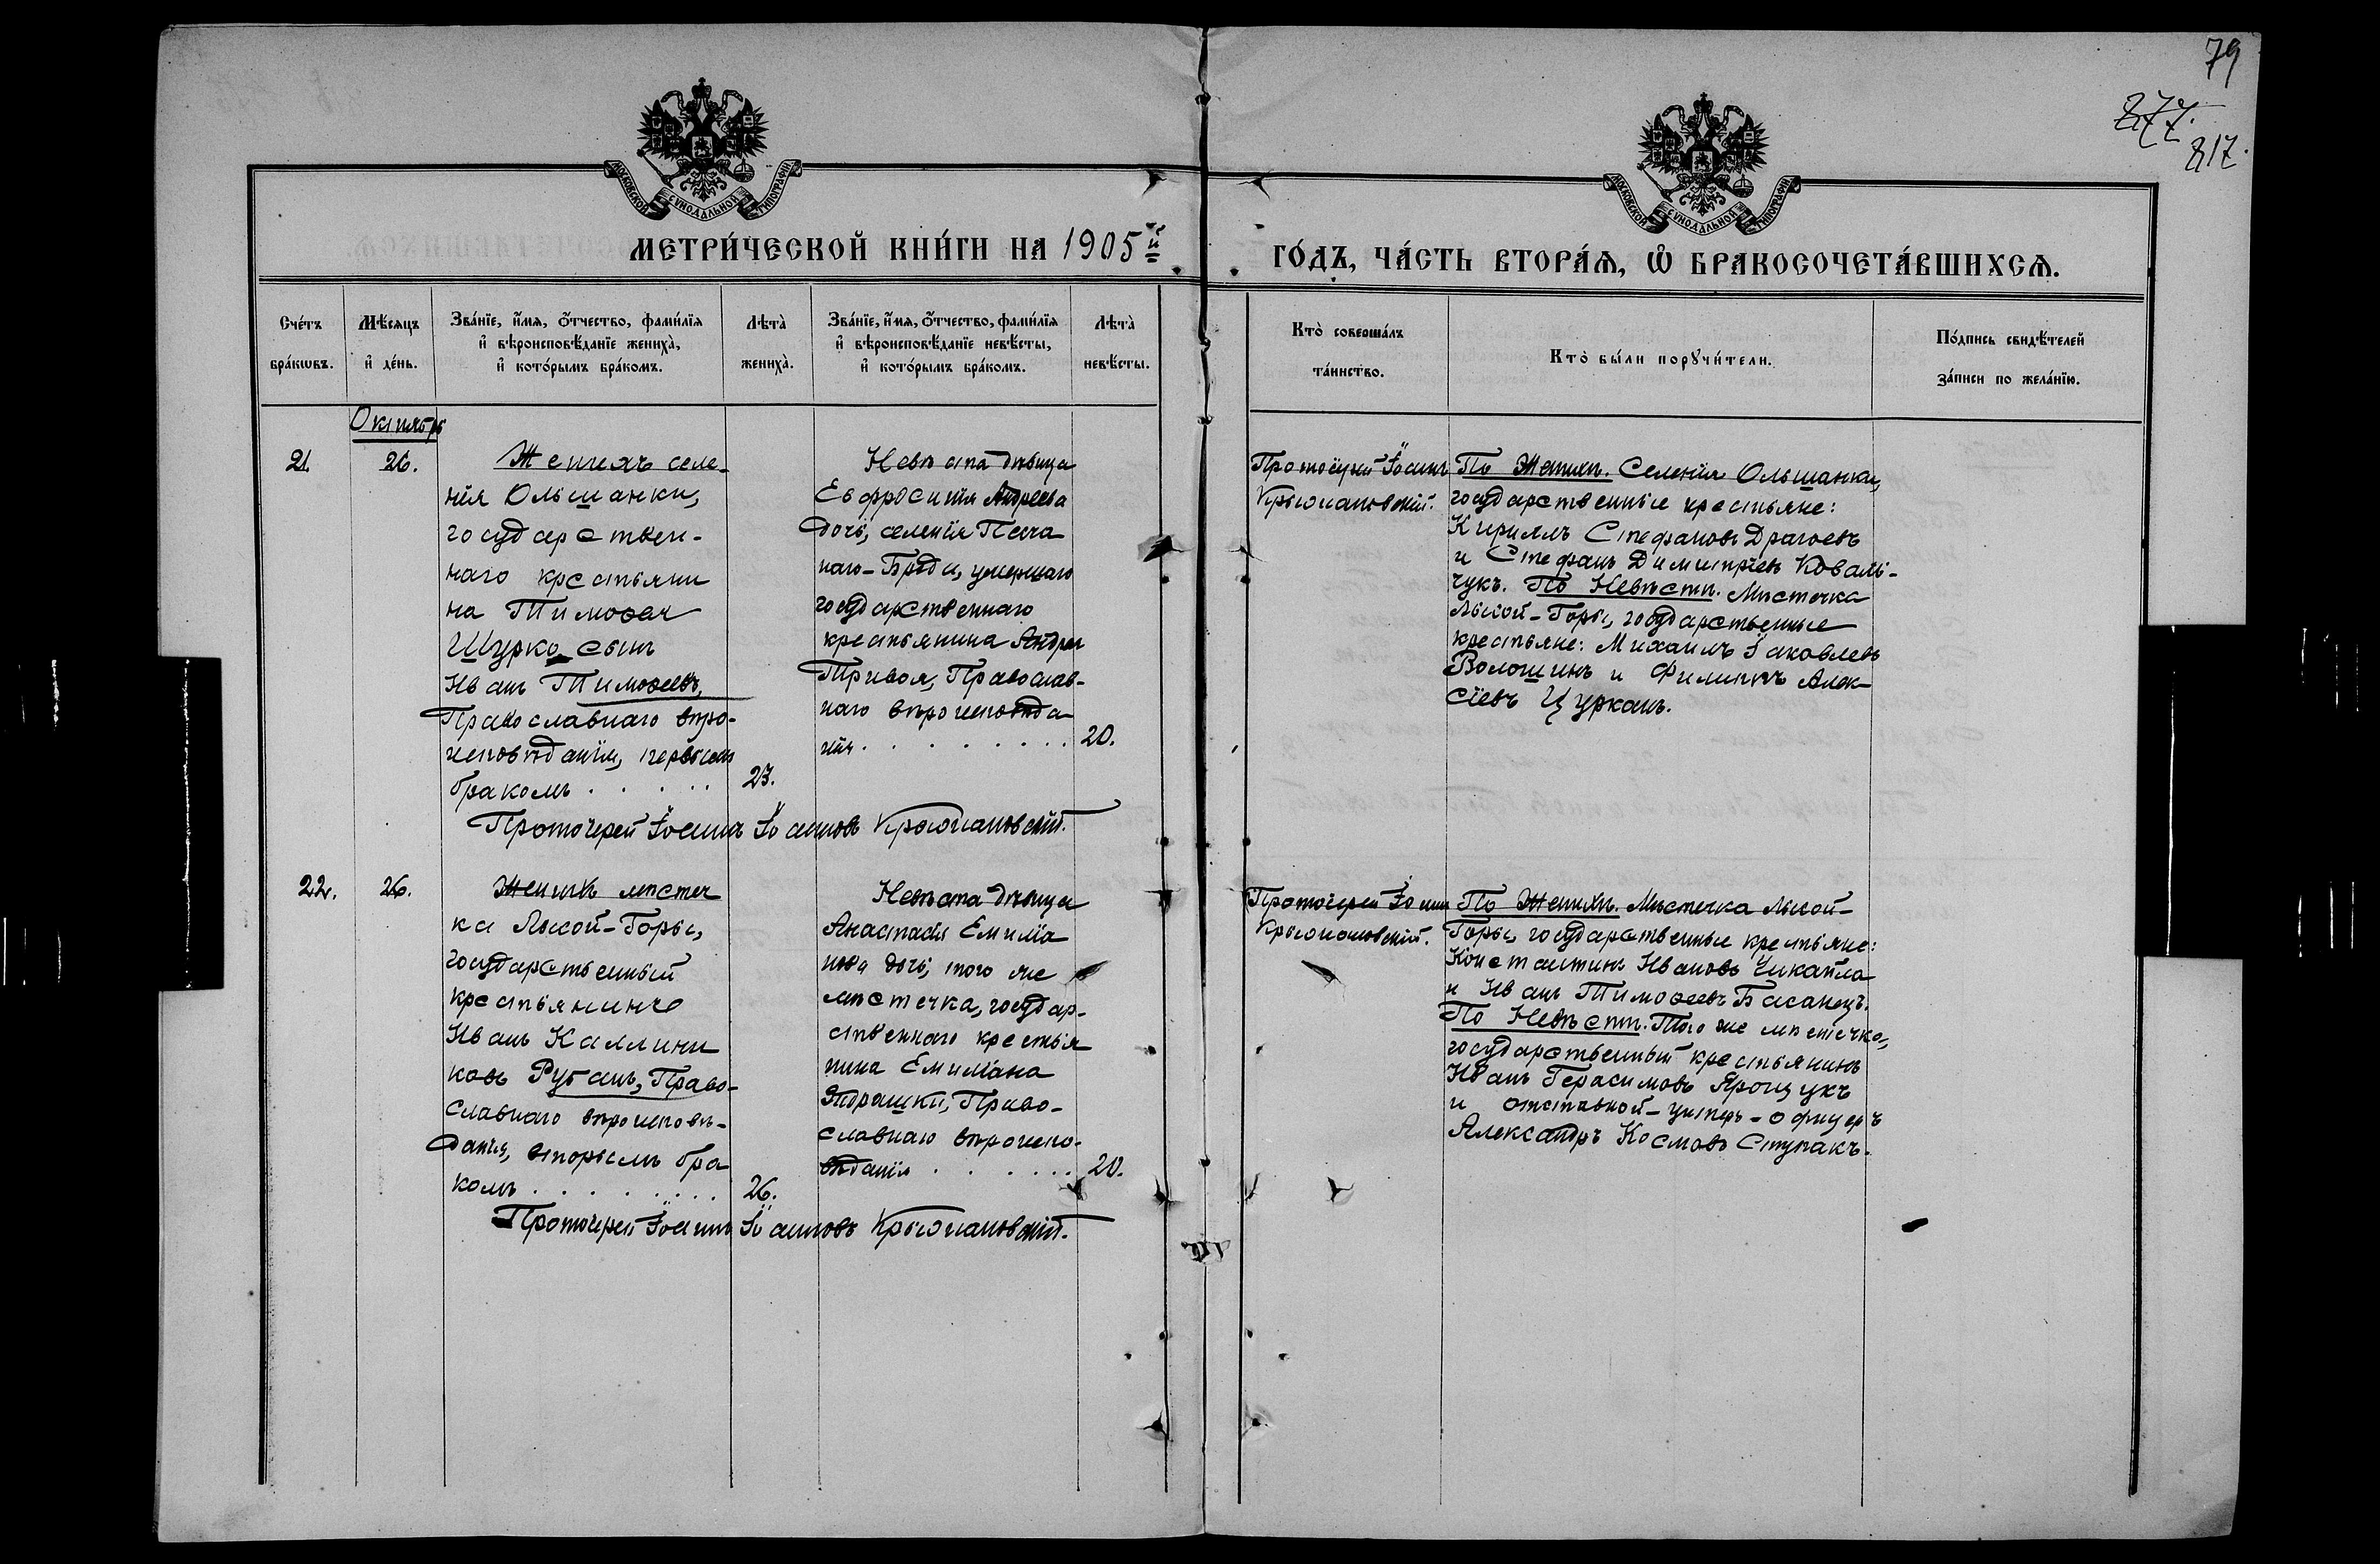 79
277.
217.
МОСКОВСКОЙ СѴНОДАЛЬНОЙ ТИПОГРАФІИ
МОСКОВСКОЙ СѴНОДАЛЬНОЙ ТИПОГРАФІИ
МЕТРИ́ЧЕСКОЙ КНИ́ГИ НА 1905й
ГО́ДЪ, ЧА́СТЬ ВТОРА́Ѧ, Ѡ҆ БРАКОСОЧЕТА́ВШИХСѦ.
Сче́тъ
бра́кѡвъ.
Мѣ́сяцъ
и҆ де́нь.
Зва́нїе, и҆́мя, ѻ҆́тчество, фами́лїя
и҆ вѣроисповѣ́данїе жениха̀,
и҆ кото́рымъ бра́комъ.
Лѣта̀
жениха̀.
Зва́нїе, и҆́мя, ѻ҆́тчество, фами́лїя
и҆ вѣроисповѣ́данїе невѣ́сты,
и҆ кото́рымъ бра́комъ.
Лѣта̀
невѣ́сты.
Кто̀ соверша́лъ
та́инство.
Кто̀ бы́ли порꙋчи́тели.
По́дпись свидѣ́телей
за́писи по жела́нїю.
Октябрь
21.
26.
Женихъ селе-
нія Ольшанки,
государствен-
наго крестьяни
на Тимоѳея
Шурко сынъ
Иванъ Тимоѳеевъ,
Православнаго вѣро-
исповѣданія, первымъ
бракомъ . . . . .
23.
Невѣста дѣвица
Евфросинія Андреева
дочь, селенія Песча
наго-Брода, умершаго
государственнаго
крестьянина Андрея
Тривоя, Православ-
наго вѣроисповѣда
нія . . . . . . . .
20.
Протоіерей Іоаннъ Іоанновъ Крыжановскій.
Протоіерей Іоаннъ
Крыжановскій.
По Женихѣ. Селенія Ольшанки,
государственные крестьяне:
Кириллъ Стефановъ Драгоевъ
и Стефанъ Димитріевъ Коваль-
чукъ. По Невѣстѣ. Мѣстечка
Лысой-Горы, государственные
крестьяне: Михаилъ Іаковлевъ
Волошинъ и Филиппъ Алек-
сіевъ Цурканъ.
22.
26.
Женихъ мѣстеч
ка Лысой-Горы,
государственный
крестьянинъ
Иванъ Каллини
ковъ Рубанъ, Право-
славнаго вѣроисповѣ-
данія, вторымъ бра
комъ . . . . . . . .
26.
Невѣста дѣвица
Анастасія Емилїа
нова дочь, того же
мѣстечка, государ-
ственнаго крестья
нина Емиліана
Ядрашки, Право-
славнаго вѣроиспо-
вѣданія . . . . . .
20.
Протоіерей Іоаннъ Іоанновъ Крыжановскій.
Протоіерей Іоаннъ
Крыжановскій.
По Женихѣ. Мѣстечка Лысой-
Горы, государственные крестьяне:
Константинъ Ивановъ Чикайло
и Иванъ Тимоѳеевъ Басанецъ.
По Невѣстѣ. Того же мѣстечка,
государственный крестьянинъ
Иванъ Герасимовъ Ярощукъ
и отставной-унтеръ-офицеръ
Александръ Космовъ Ступакъ.